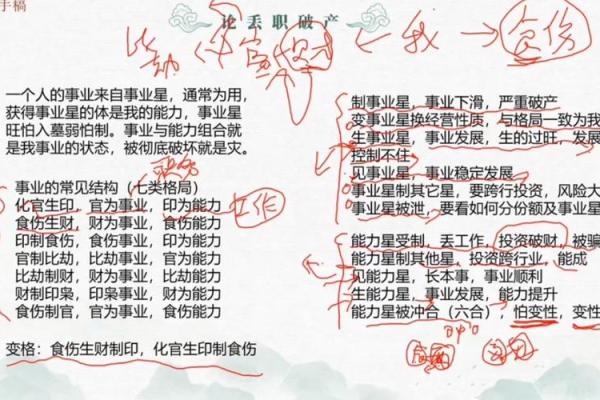 手稿
论丢职破产
比劫
官
我
食伤
一个人的事业来自事业星，通常为用，
获得事业星的体是我的能力，事业星
旺怕入墓弱怕制。事业与能力组合就
是我事业的状态，被彻底破坏就是灾。
事业的常见结构（七类格局）
化官生印，官为事业，印为能力
工作
食伤生财，财为事业，食伤为能力
印制食伤，食伤事业，印为能力
官制比劫，比劫事业，官为能力
比劫制财，财为事业，比劫能力
财制印枭，印枭事业，财为能力
食伤制官，官为事业，食伤能力
变格：食伤生财制印，化官生印制食伤
制事业星，事业下滑，严重破产
变事业星换经营性质，与格局一致为我
生事业星，事业发展，生的过旺，发展
控制不住
见事业星，事业稳定发展
事业星制其它星，要跨行投资，风险大
事业星被泄，要看如何分份额及事业星
能力星受制，丢工作，投资破财，被骗
能力星制其他星，投资跨行业，能成
见能力星，长本事，事业顺利
生能力星，事业发展，能力提升
能力星被冲合（六合），怕变性，变性